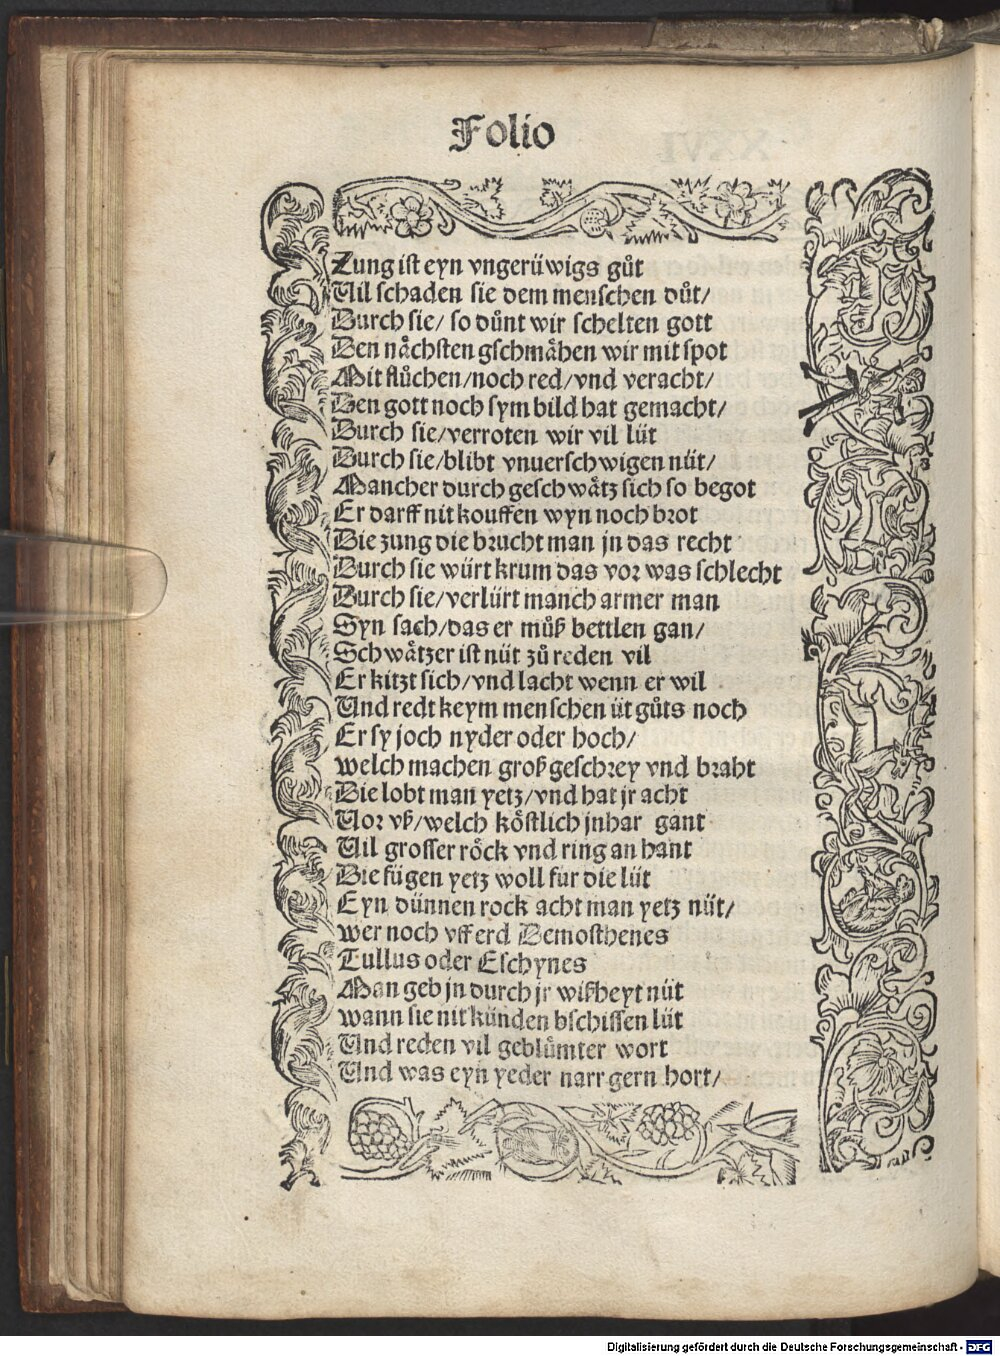 Folio
Zung ist eyn vngerüwigs gůt
Vil schaden sie dem menschen důt/
Durch sie/ so důnt wir schelten gott
Den nåchsten gschmåhen wir mit spot
Mit flůchen/noch red/vnd veracht/
Den gott noch sym bild hat gemacht/
Durch sie/verroten wir vil lüt
Durch sie/blibt vnuerschwigen nüt/
Mancher durch geschwåtz sich so begot
Er darff nit kouffen wyn noch brot
Die zung die brucht man jn das recht
Durch sie würt krum das vor was schlecht
Durch sie/verlürt manch armer man
Syn sach/das er můß bettlen gan/
Schwåtzer ist nüt zů reden vil
Er kitzt sich/vnd lacht wenn er wil
Vnd redt keym menschen üt gůts noch
Er sy joch nyder oder hoch/
welch machen groß geschrey vnd braht
Die lobt man yetz/vnd hat jr acht
Vor vß/welch kŏstlich jnhar gant
Vil grosser rŏck vnd ring an hant
Die fügen yetz woll für die lüt
Eyn dünnen rock acht man yetz nüt/
wer noch vff erd Demosthenes
Tullus oder Eschynes
Man geb jn durch jr wißheyt nüt
wann sie nit künden bschissen lüt
Vnd reden vil geblůmter wort
Vnd was eyn yeder narr gern hort/
Digitalisierung gefördert durch die Deutsche Forschungsgemeinschaft - DFG